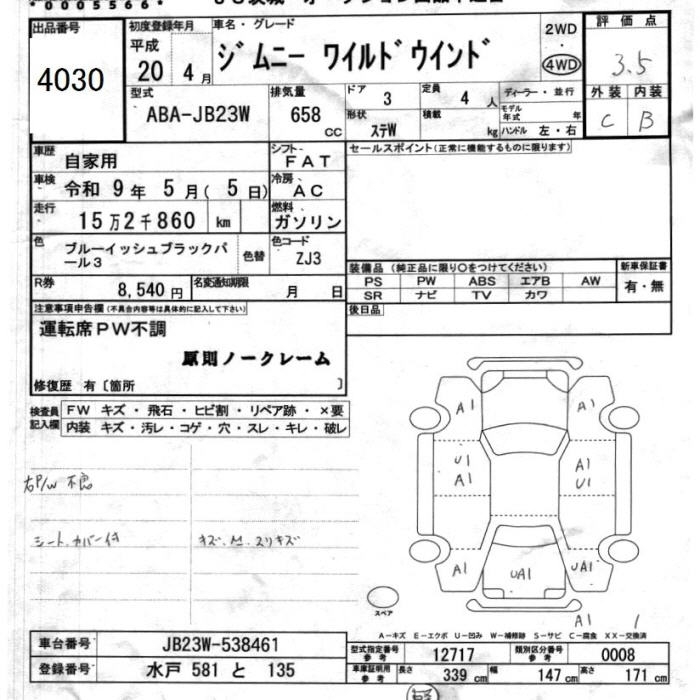 *0005566*
出品番号
4030
初度登録年月
平成
20 4 月
車名・グレード
ジムニー ワイルドウインド
2WD
・
4WD
評価点
3.5
外装 内装
C B
型式
ABA-JB23W
排気量
658
cc
ドア 3
形状 ステW
定員 4 人
積載 kg
ディーラー・並行
モデル年式 年
ハンドル 左・右
車歴 自家用
シフト FAT
車検 令和 9 年 5 月 ( 5 日)
冷房 AC
走行 15万2千860 km
燃料 ガソリン
色 ブルーイッシュブラックパール3
色替
色コード ZJ3
R券 8,540 円
名変通知期限 月 日
セールスポイント(正常に機能するものに限ります)
装備品 (純正品に限り○をつけてください)
新車保証書
PS PW ABS エアB AW
SR ナビ TV カワ
有・無
後日品
注意事項申告欄 (不具合内容等は具体的に記入して下さい)
運転席PW不調
原則ノークレーム
修復歴 有〔箇所 〕
検査員記入欄
FW キズ・飛石・ヒビ割・リペア跡・×要
内装 キズ・汚レ・コゲ・穴・スレ・キレ・破レ
右P/W 不良
シートカバー付
キズ.凹.スリキズ
A1 A1
U1 A1
A1 U1
A1 UA1 UA1
A1 1
スペア
A-キズ E-エクボ U-凹み W-補修跡 S-サビ C-腐食 XX-交換済
車台番号 JB23W-538461
登録番号 水戸 581 と 135
型式指定番号 参考 12717
類別区分番号 参考 0008
車庫証明用 参考 長さ 339 cm 幅 147 cm 高さ 171 cm